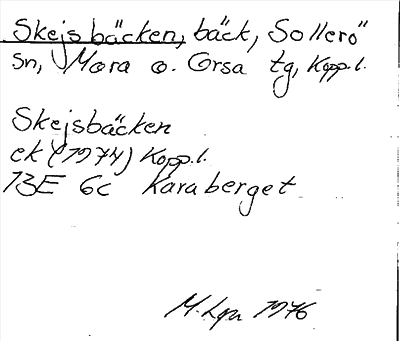 Skejsbäcken, bäck, Sollerö
sn, Mora o. Orsa tg, Kopp.l.
Skejsbäcken
ek (1974) Kopp.l.
13E 6c Karaberget
1976